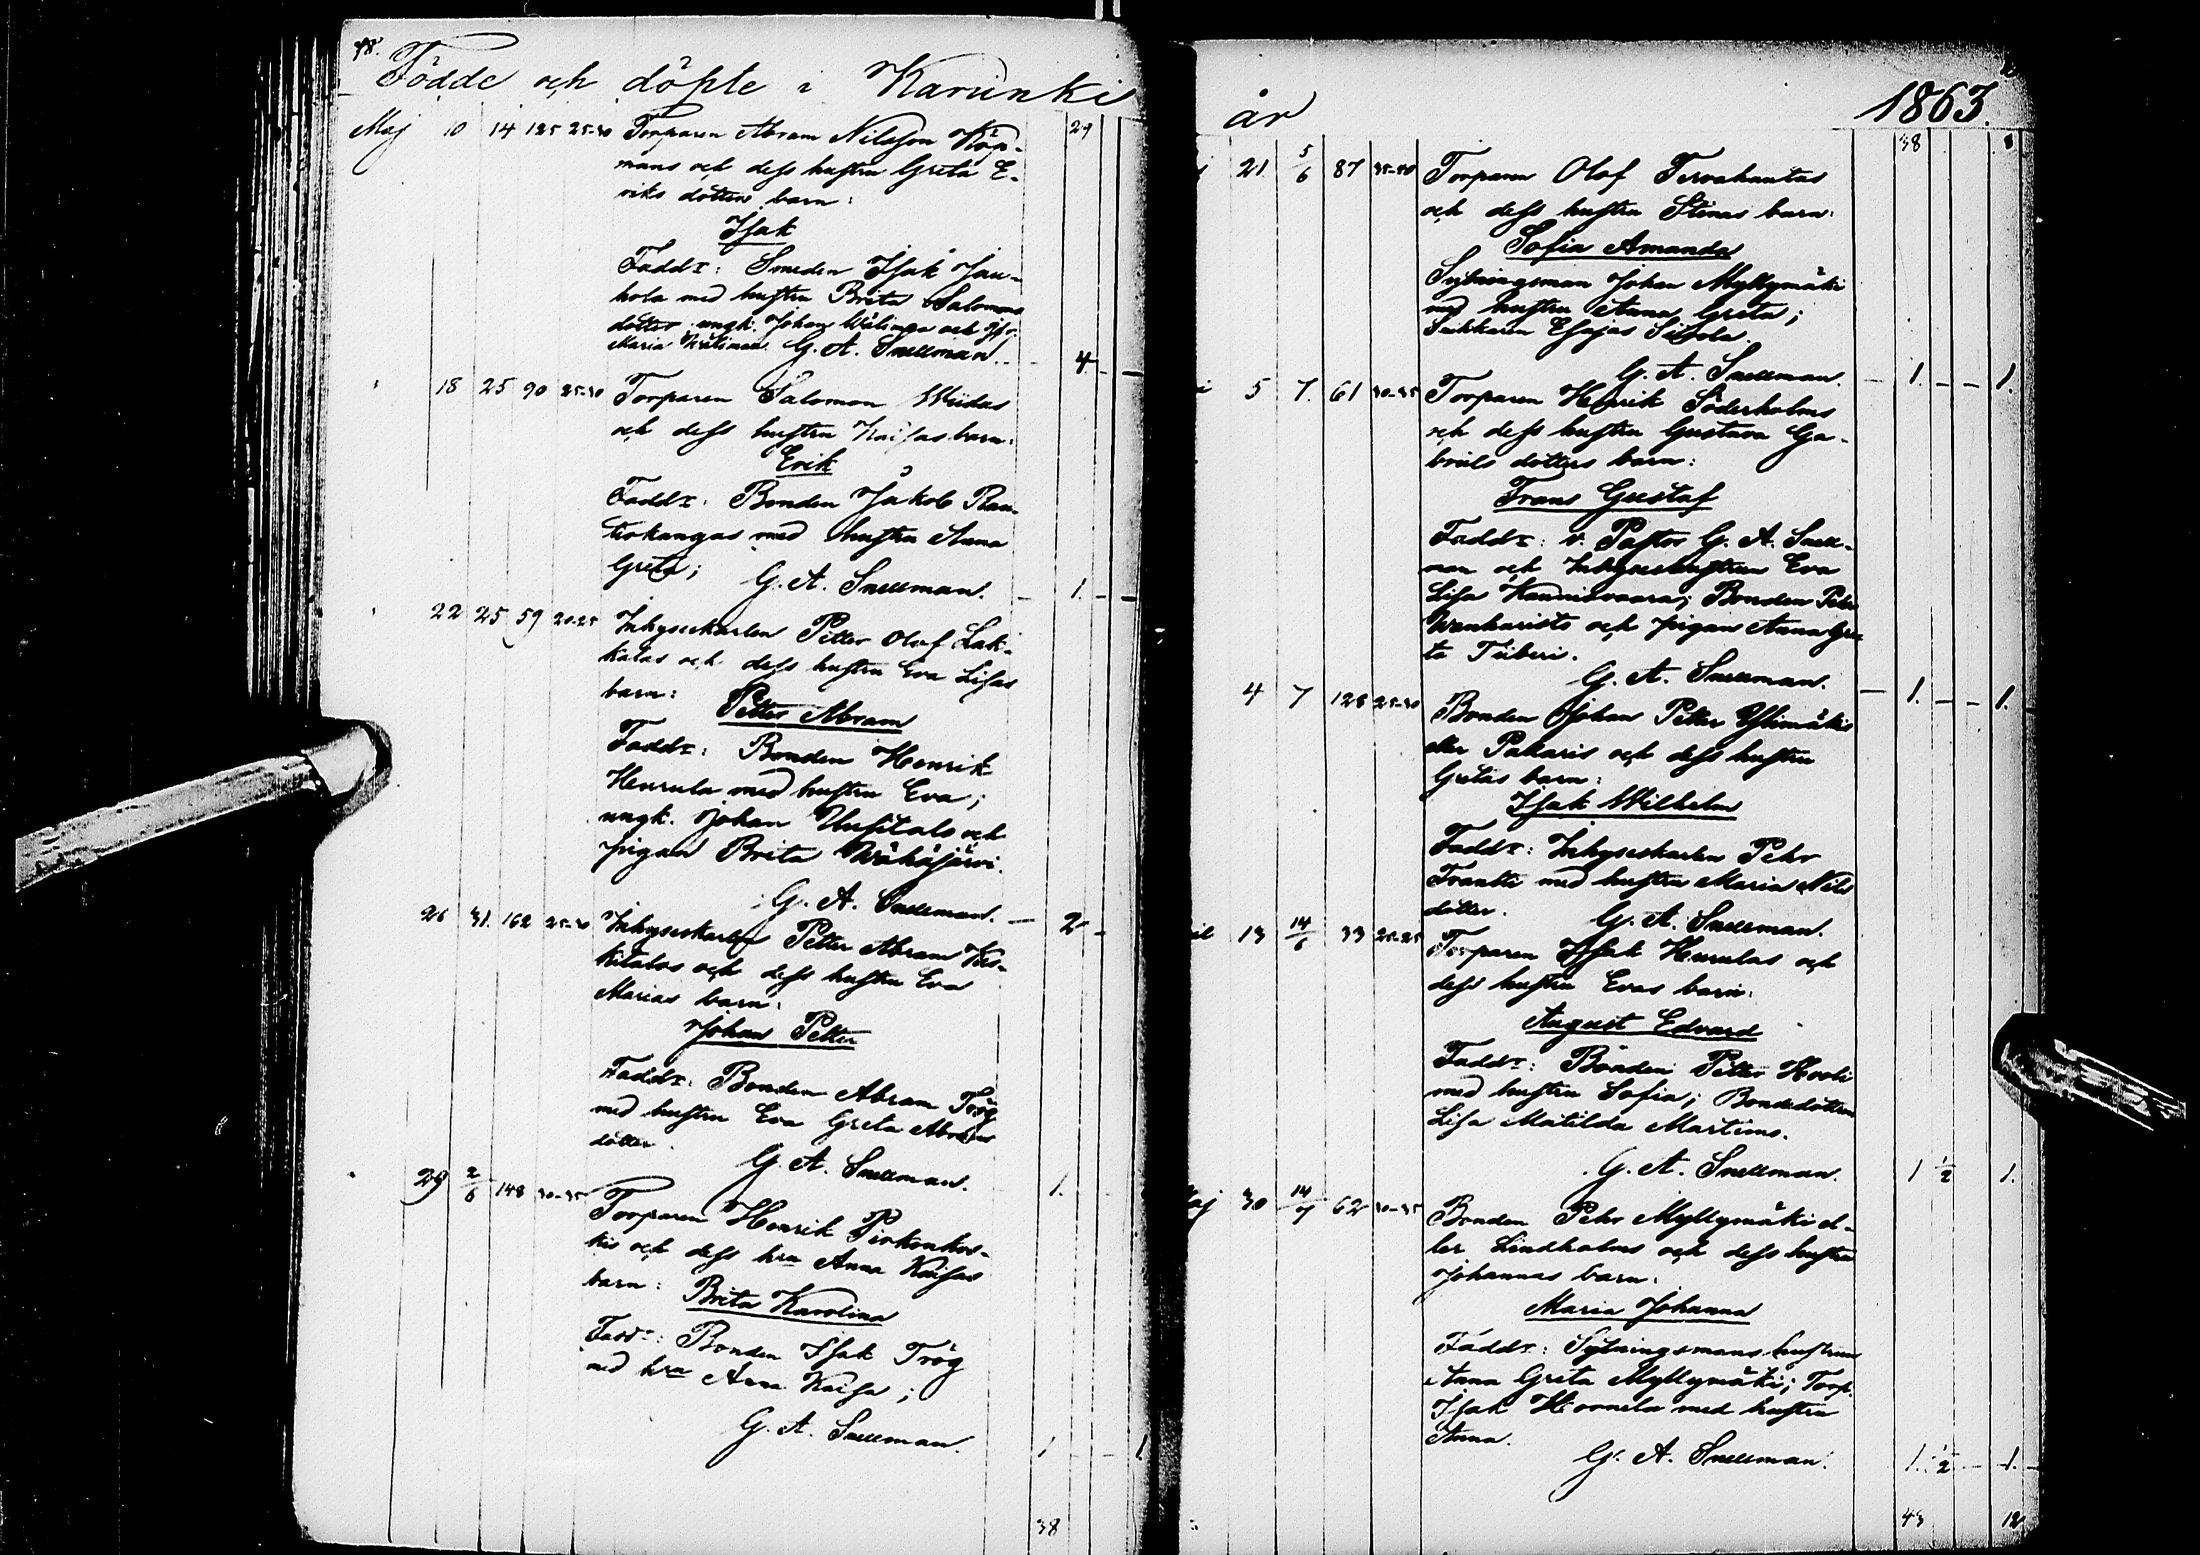 78.
Födde och döpte i Karunki
29
Maj 10 14 125 25-30 Torparen Abram Nilsson Köp-
mans och dess hustru Greta E-
riks dotters barn:
Isak
Faddr: Smeden Isak Jau-
hola med hustru Brita Salomons
dotter; ungk. Johan och
Maria G. A. Snellman. 4.
18 25 90 25-30 Torparen Salomon Wiidas
och dess hustru Kaisas barn:
Erik
Faddr: Bonden Jakob Rau-
tiokangas med hustru Anna
Greta; G. A. Snellman. 1.
22 25 59 20-25 Inhyseskarlen Petter Olof Lak-
kalas och dess hustru Eva Lisas
barn: Petter Abram
Faddr: Bonden Henrik
Herrula med hustru Eva;
ungk. Johan Uusitalo och
pigan Brita Wähäjärvi.
G. A. Snellman. 2
26 31. 162 25-30 Inhyseskarlen Petter Abram Kes-
kitalos och dess hustru Eva
Marias barn:
Johan Petter
Faddr: Bonden Abram Trög
med hustru Eva Greta Abrams
dotter.
G. A. Snellman. 1.
29 2/6 148 30-35 Torparen Henrik Pirkonkos-
kis och dess hra Anna Kaisas
barn: Brita Karolina
Faddr: Bonden Isak Trög
med hra Anna Kaisa;
G. A. Snellman. 1 1.
38
år 1863.
38 8
21. 5/6 87 35-40 Torparen Olof Tervahautas
och dess hustru Stinas barn:
Sofia Amanda
Sytningsman Johan Myllymäki
med hustru Anna Greta;
Esajas
G. A. Snellman. 1. 1.
5 7. 61 30-35 Torparen Henrik Söderholms
och dess hustru Gustava Ga-
briels dotters barn:
Frans Gustaf
Faddr: v. Pastor G. A. Snell-
man och Inhyseshustrun Eva
Lisa Kauniovaara; Bonden Petter
och pigan Anna Gre-
ta Tiiberi.
G. A. Snellman. 1. 1.
4 7 128 25-30 Bonden Johan Petter Ylimäkis
eller Pakaris och dess hustru
Gretas barn:
Isak Wilhelm
Faddr: Inhyseskarlen Pehr
Frantti med hustru Maria Nils
dotter. G. A. Snellman.
13 14/6 33 20-25 Torparen Isak Herrulas och
dess hustru Evas barn:
August Edvard
Faddr: Bonden Petter Hooli
med hustru Sofia; Bondedottern
Lisa Matilda Martimo.
G. A. Snellman. 1 1/2 1.
30 14/7 62 30-35 Bonden Pehr Myllymäki el-
ler Lindholms och dess hustru
Johannas barn:
Maria Johanna
Faddr: Sytningsmans hustrun
Anna Greta Myllymäki; Torp.
Isak Hoornela med hustru
Anna.
G. A. Snellman. 1. 1/2 1.
43 12